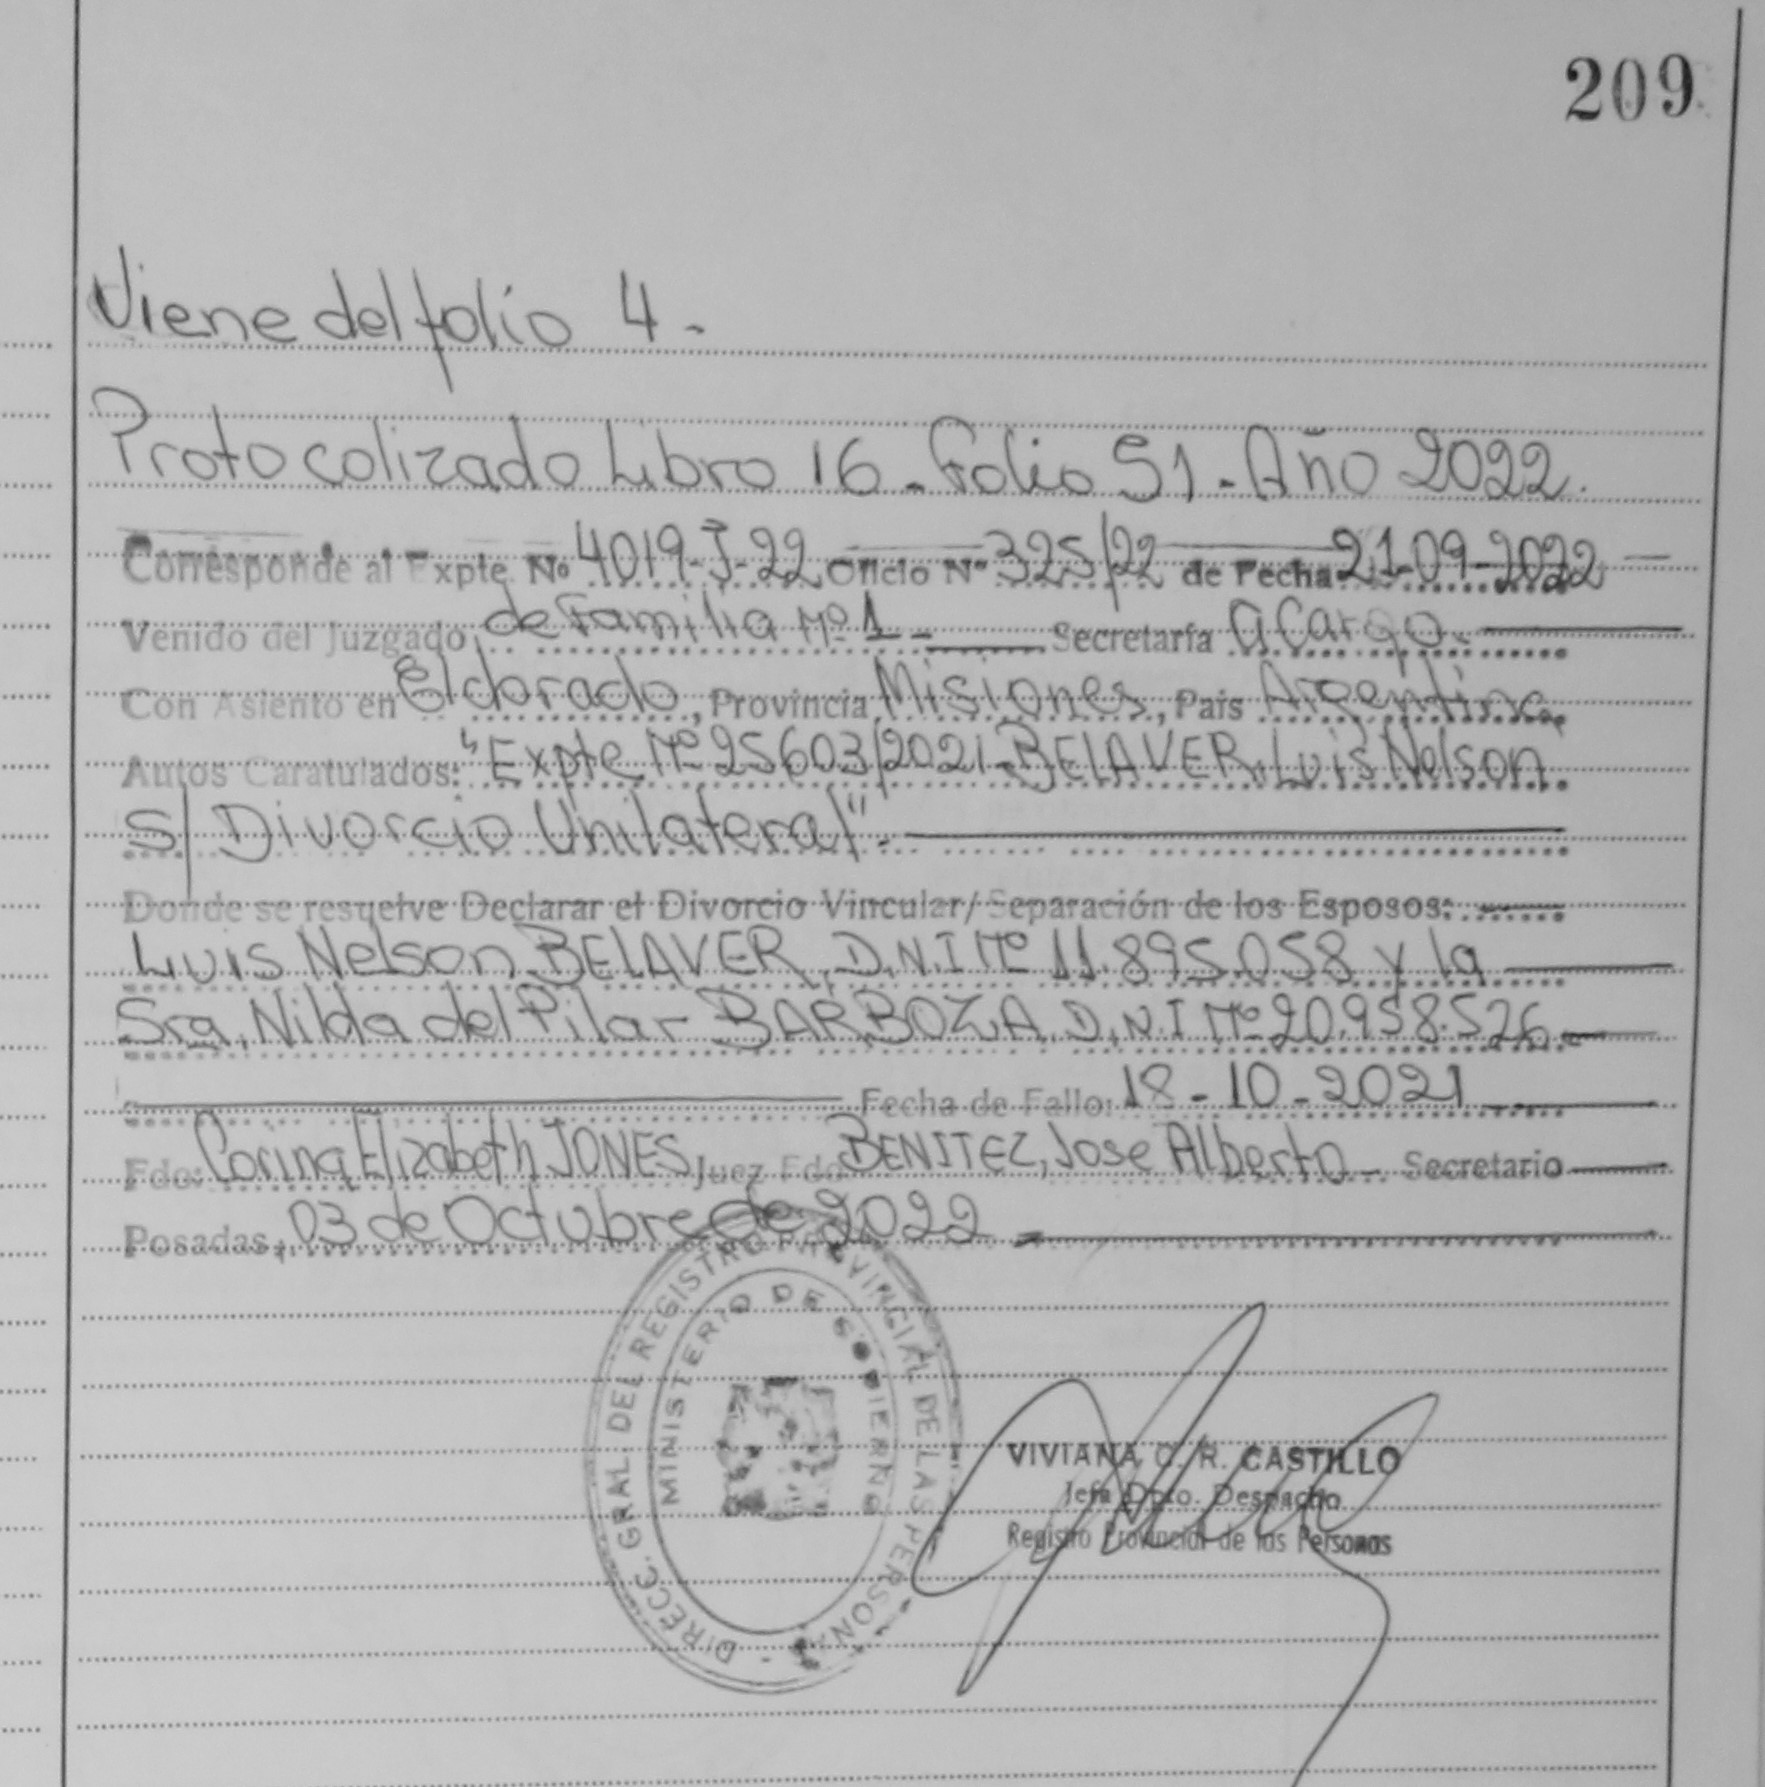 209
Viene del folio 4.-
Protocolizado Libro 16-Folio 51-Año 2022.
Corresponde al Expte. Nº 4019-J-22 Oficio Nº 325/22 de Fecha 21-09-2022
Venido del Juzgado de Familia Nº 1.- Secretaría a Cargo.
Con Asiento en Eldorado, Provincia Misiones, Pais Argentina,
Autos Caratulados: "Expte Nº 25603/2021-BELAVER, Luis Nelson.
S/ Divorcio Unilateral".-
Donde se resuelve Declarar el Divorcio Vincular/Separación de los Esposos:
Luis Nelson BELAVER, D.N.I Nº 11.895.058 y la
Sra. Nilda del Pilar BARBOZA, D.N.I Nº 20.958.526.-
Fecha de Fallo: 18-10-2021
Fdo: Corina Elizabeth JONES, Juez Fdo BENITEZ, Jose Alberto - Secretario
Posadas, 03 de Octubre de 2022
DIRECC. GRAL. DEL REGISTRO PROVINCIAL DE LAS PERSONAS
MINISTERIO DE GOBIERNO
VIVIANA C. R. CASTILLO
Jefa Dpto. Despacho
Registro Provincial de las Personas